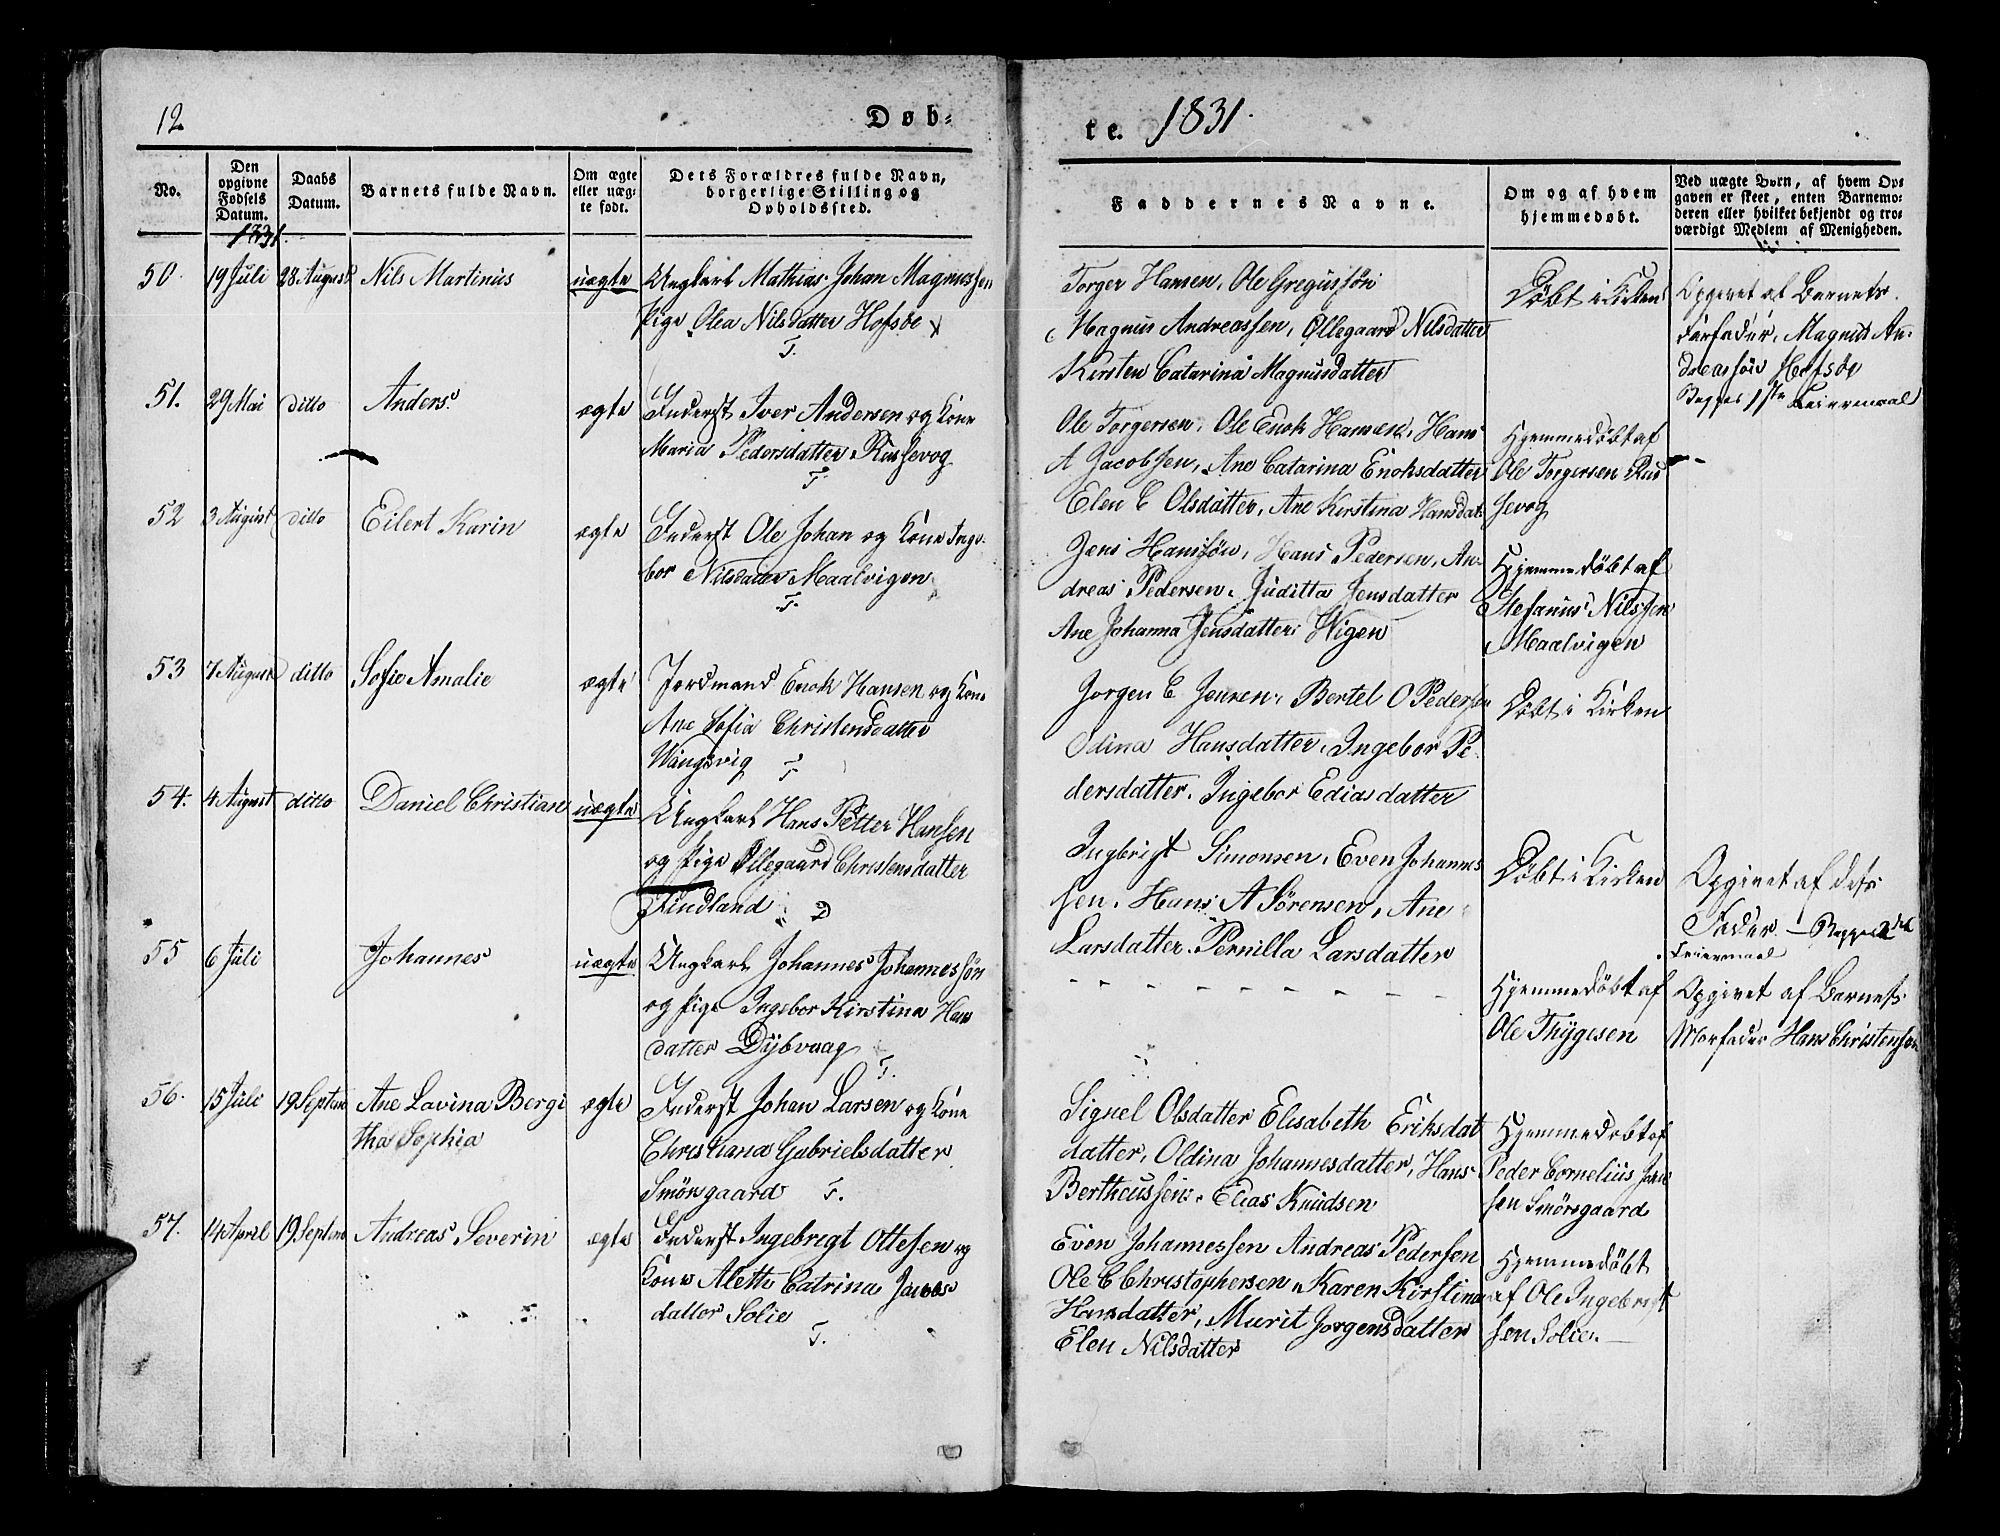 12
Døb-
te. 1831.
No.
Den opgivne Fødsels Datum.
Daabs Datum.
Barnets fulde Navn.
Om ægte eller uæg- te født.
Dets Forældres fulde Navn, borgerlige Stilling og Opholdssted.
Faddernes Navne.
Om og af hvem hjemmedøbt.
Ved uægte Børn, af hvem Op- gaven er skeet, enten Barnemo- deren eller hvilket bekjendt og tro- værdigt Medlem af Menigheden.
1831.
50. 19 Juli 28 August Nils Martinus uægte Ungkarl Mathias Johan Magnussen
Pige Olea Nilsdatter Hofsøe
T.
Torger Hansen, Ole Gregussøn
Magnus Andreassen, Øllegaard Nilsdatter
Kirsten Catarina Magnusdatter
Døbt i Kirken
Opgivet af Barnets
Farfader, Magnus An-
dreassøn Hofsøe
Begges 1ste Leiermaal
51. 29 Mai ditto Anders ægte Inderst Iver Andersen og Kone
Maria Pedersdatter Russevog
T.
Ole Torgersen, Ole Enok Hansen, Hans
A Jacobsen, Ane Catarina Enoksdatter
Elen E Olsdatter, Ane Kirstina Hansdat
Hjemmedøbt af
Ole Torgersen Rus
sevog
52 3 August ditto Eilert Karin ægte Inderst Ole Johan og Kone Inge-
bor Nilsdatter Maalvigen
T.
Jens Hanssøn, Hans Pedersen, An-
dreas Pedersen, Juditta Jensdatter
Ane Johanna Jensdatter Wigen
Hjemmedøbt af
Stefanus Nilssen
Maalvigen
53 7 August ditto Sofie Amalie ægte Jordmand Enok Hansen og Kone
Ane Sofia Christensdatter
Wangsvig T
Jorgen E Jensen, Bertel O Pedersen
Odina Hansdatter, Ingebor Pe-
dersdatter, Ingebor Ediasdatter
Døbt i Kirken
54. 4 August ditto Daniel Christian uægte Ungkarl Hans Petter Hansen
og Pige Øllegaard Christensdatter
Findland D
Ingbrigt Simonsen, Even Johannes
sen, Hans A Sørensen, Ane
Larsdatter, Pernilla Larsdatter
Døbt i Kirken
Opgivet af dets
Fader – Begges 2det
Leiermaal
55 6 Juli Johannes uægte Ungkarl Johannes Johannessøn
og Pige Ingebor Kirstina Hans
datter Dybvaag
T.
- - - - - - - - -
Hjemmedøbt af
Ole Thygesen
Opgivet af Barnets
Morfader Hans Christensen
56. 15 Juli 19 Septem Ane Lavina Bergi
tha Sophia
ægte Inderst Johan Larsen og Kone
Christiana Gabrielsdatter
Smørsgaard T.
Signel Olsdatter Elisabeth Eriksdat
datter, Oldina Johannesdatter, Hans
Bertheussen, Elias Knudsen
Hjemmedøbt af
Peder Cornelius Jen
sen Smørsgaard
57. 14 April 19 Septem Andreas Severin ægte Inderst Ingebrigt Ottesen og
Kone Aletta Catrina Jacobs
datter Solie
T.
Even Johannessen Andreas Pedersen
Ole C Christophersen, Karen Kirstina
Hansdatter, Murit Jorgensdatter
Elen Nilsdatter
Hjemmedøbt
af Ole Ingebrigt
sen Solie.